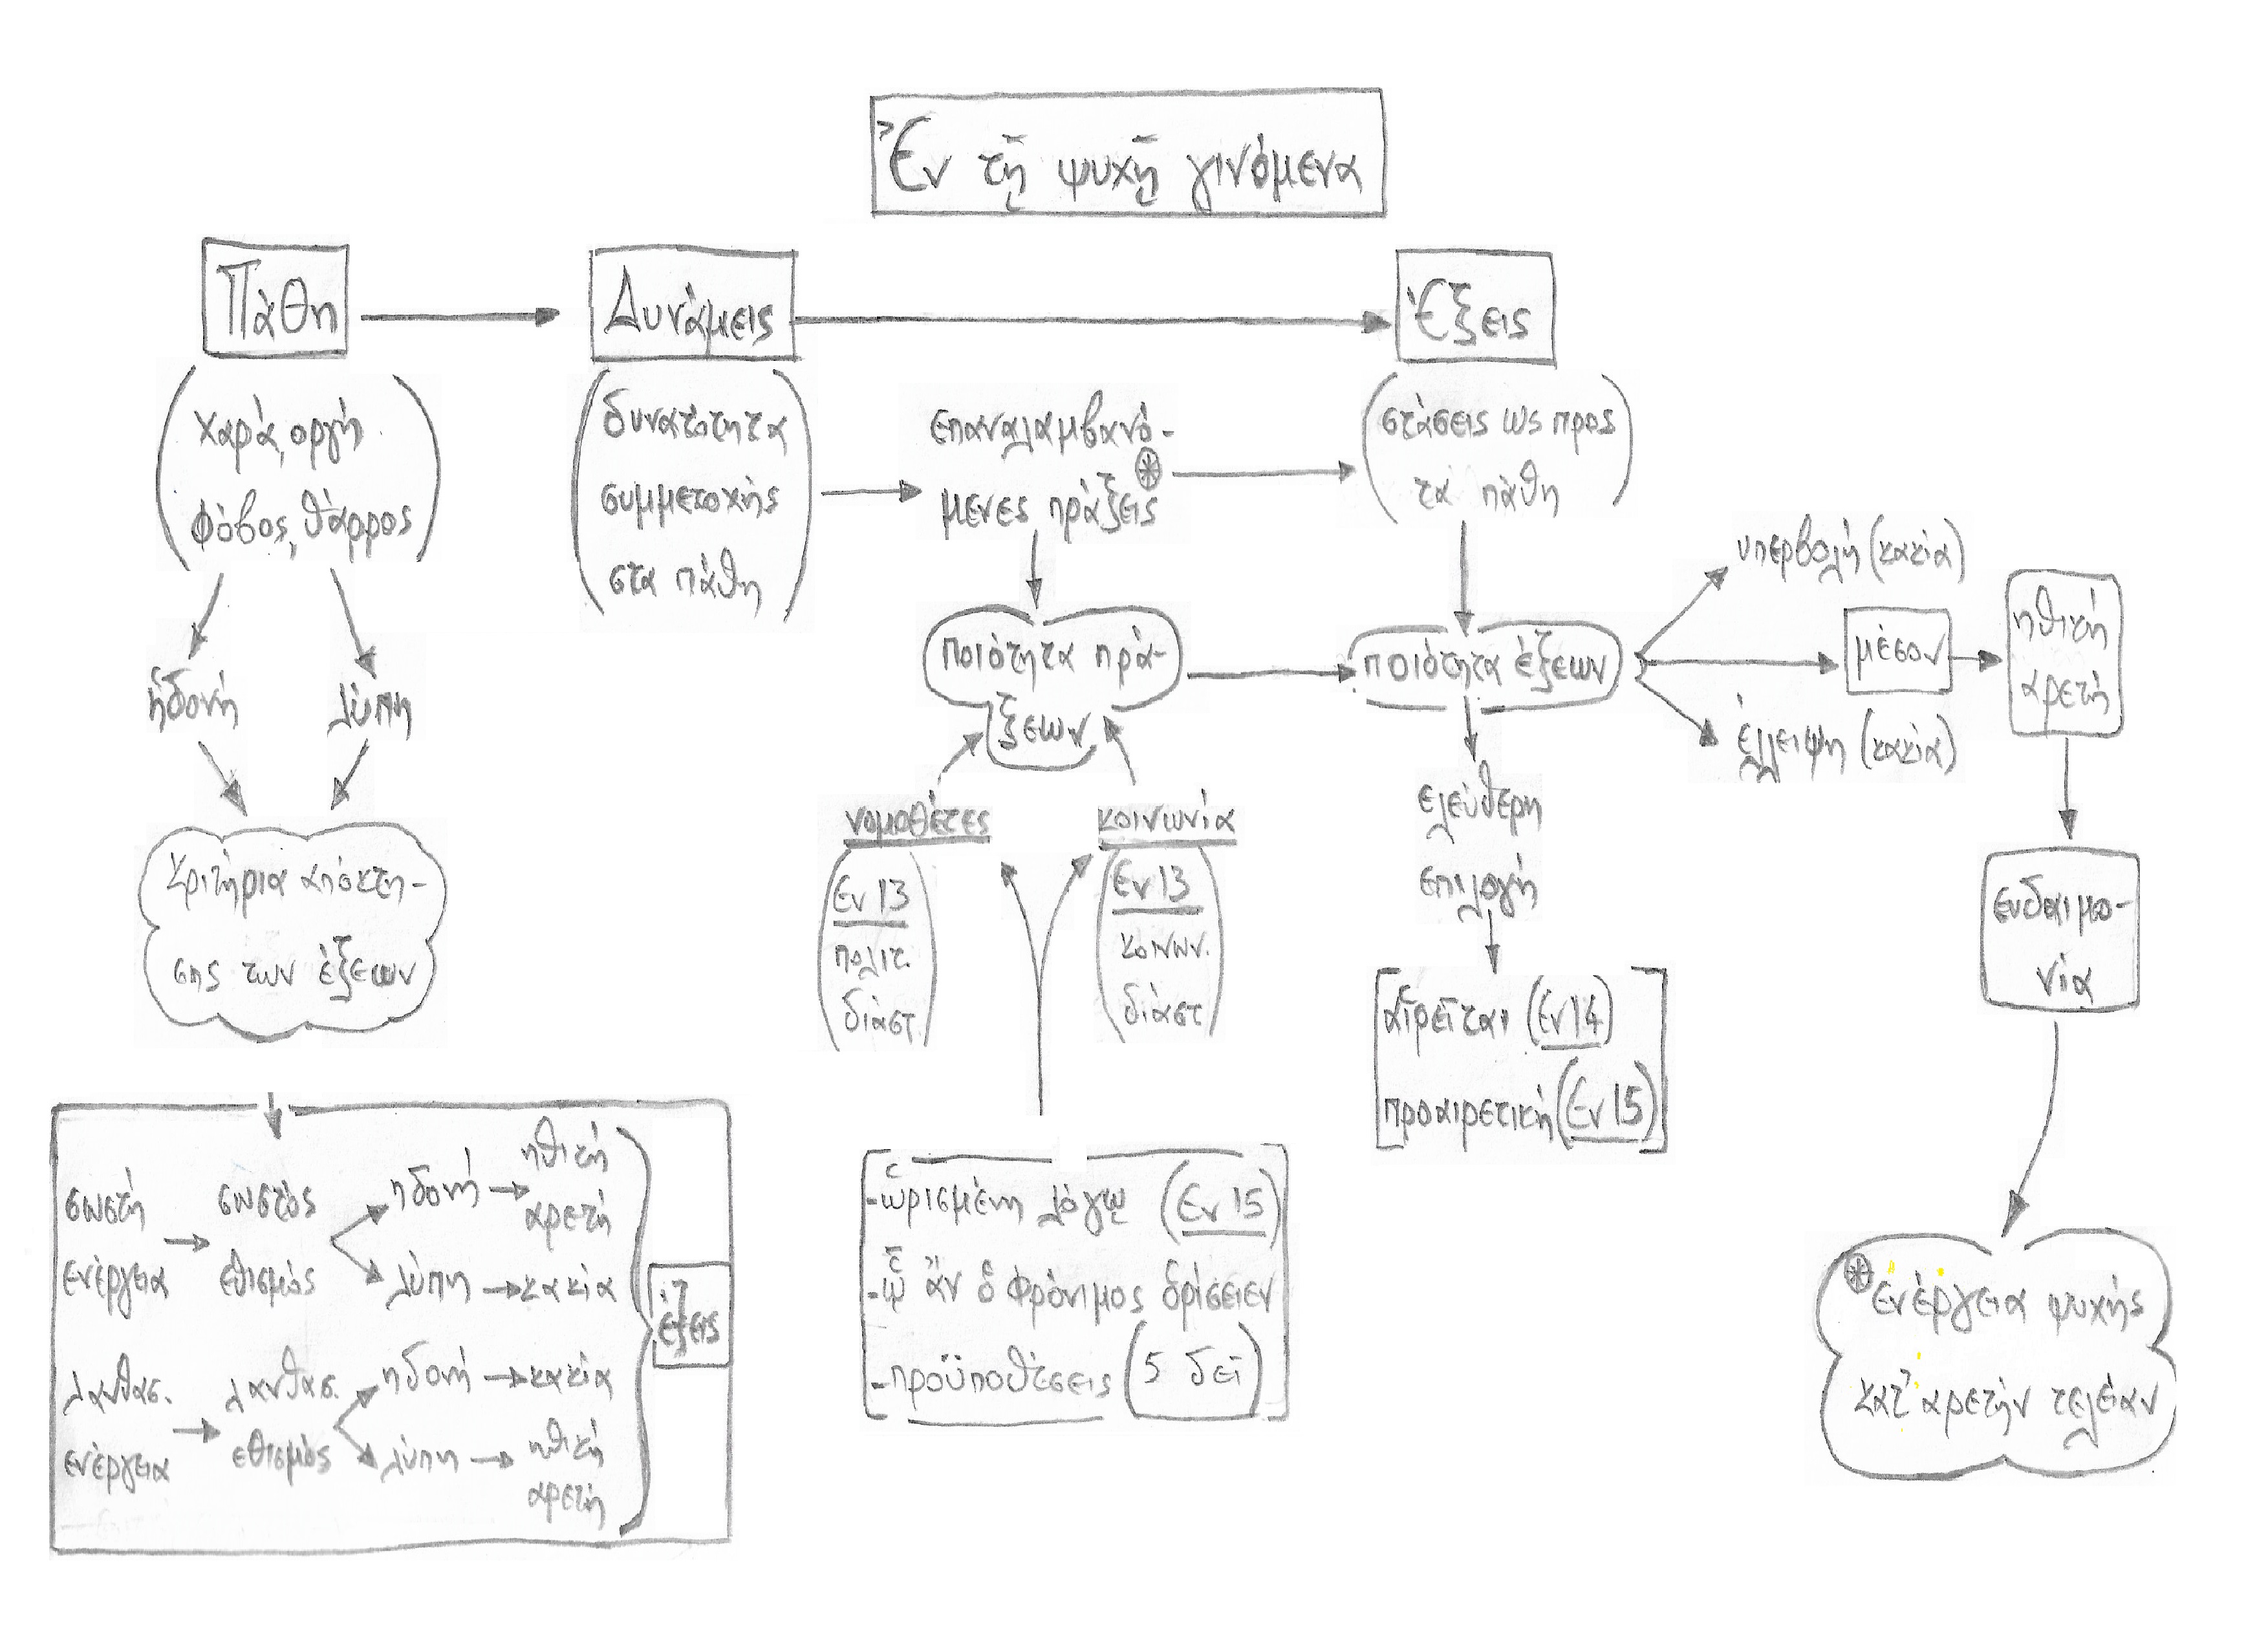 Ἐν τῇ ψυχῇ γινόμενα
Πάθη
Δυνάμεις
Ἕξεις
(χαρά, οργή
φόβος, θάρρος)
(δυνατότητα
συμμετοχής
στα πάθη)
επαναλαμβανό-
μενες πράξεις
(στάσεις ως προς
τα πάθη)
ἡδονή
λύπη
κριτήρια απόκτη-
σης των έξεων
ποιότητα πρά-
ξεων
ποιότητα έξεων
υπερβολή (κακία)
μέσον
έλλειψη (κακία)
ηθική
αρετή
ευδαιμο-
νία
νομοθέτες
(Εν 13
πολιτ.
διάστ.)
κοινωνία
(Εν 13
κοινων.
διάστ)
ελεύθερη
επιλογή
[αἱρεῖται (Εν 14)
προαιρετική (Εν 15)]
[-ὡρισμένη λόγῳ (Εν 15)
-ᾧ ἂν ὁ φρόνιμος ὁρίσειεν
-προϋποθέσεις (5 δεῖ)]
σωστή
ενέργεια
σωστός
εθισμός
ηδονή
ηθική
αρετή
λύπη
κακία
λανθασ.
ενέργεια
λανθασ.
εθισμός
ηδονή
κακία
λύπη
ηθική
αρετή
έξεις
ενέργεια ψυχής
κατ' αρετήν τελείαν